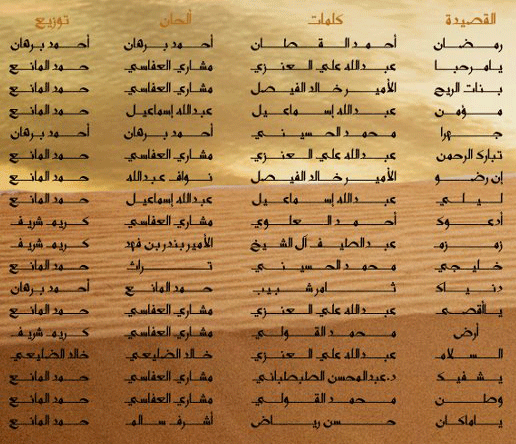 القصيدة كلمات ألحان توزيع
رمضان أحمد القطان أحمد برهان أحمد برهان
يامرحبا عبدالله علي العنزي مشاري العفاسي حمد المانع
بنات الريح الأمير خالد الفيصل مشاري العفاسي حمد المانع
مؤمن عبدالله إسماعيل عبدالله إسماعيل حمد المانع
جهرا محمد الحسيني أحمد برهان أحمد برهان
تبارك الرحمن عبدالله علي العنزي مشاري العفاسي حمد المانع
إن رضو الأمير خالد الفيصل نواف عبدالله حمد المانع
ليلي عبدالله إسماعيل عبدالله إسماعيل حمد المانع
أدعوك أحمد العلوي مشاري العفاسي كريم شريف
زمزم عبدالطيف آل الشيخ الأمير بندر بن فهد كريم شريف
خليجي محمد الحسيني تراث حمد المانع
دنياك ثامر شبيب حمد المانع أحمد برهان
يالأقصى عبدالله علي العنزي مشاري العفاسي حمد المانع
أرض محمد القولي مشاري العفاسي كريم شريف
السلام عبدالله علي العنزي خالد الضليعي خالد الضليعي
يشفيك د.عبدالمحسن الطبطبائي مشاري العفاسي حمد المانع
وطن محمد القولي مشاري العفاسي حمد المانع
ياماكان حسن رياض أشرف سالم حمد المانع